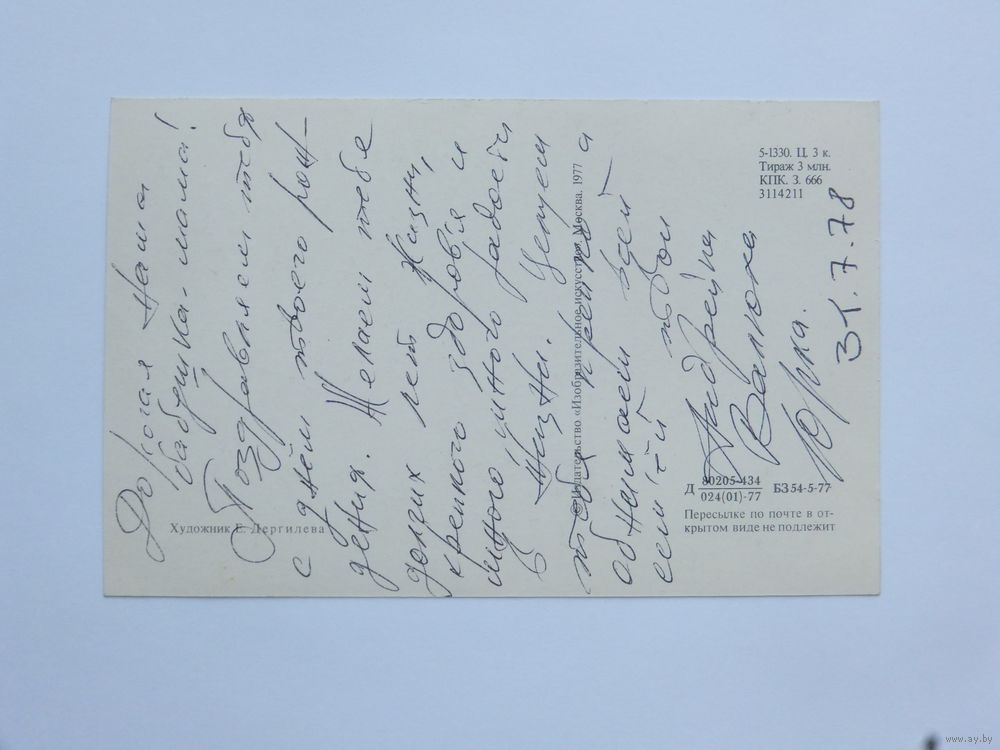 Дорогая наша
бабушка-мама!
Поздравляем тебя
с днём твоего рож-
дения. Желаем тебе
долгих лет жизни,
крепкого здоровья и
много много радости
в жизни. Целуем
тебя крепко и
обнимаем всей
семьёй тобой
Андрейка
Валюха
Юрка.
31.7.78
Художник Е. Дергилева
© Издательство «Изобразительное искусство». Москва. 1977
5-1330. Ц. 3 к.
Тираж 3 млн.
КПК. З. 666
3114211
Д 80205-434
024(01)-77 БЗ 54-5-77
Пересылке по почте в от-
крытом виде не подлежит
www.ay.by